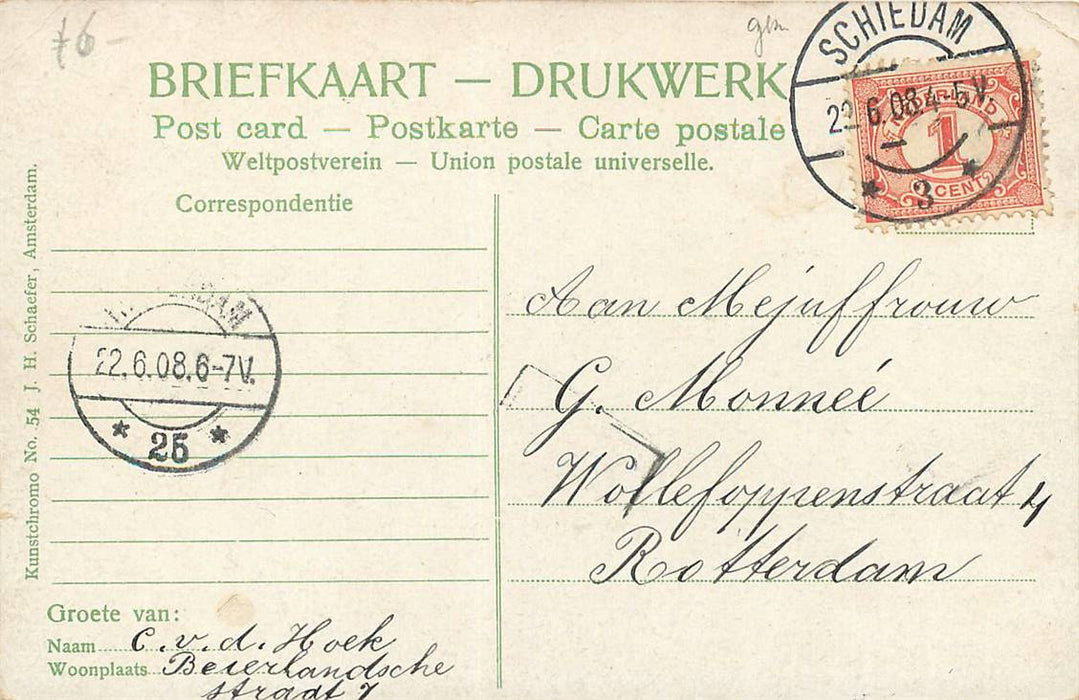 16-
gem
BRIEFKAART — DRUKWERK
Post card — Postkarte — Carte postale
Weltpostverein — Union postale universelle.
SCHIEDAM
22.6.08.4-5V.
3
NEDERLAND
1
CENT
Correspondentie
DAM
22.6.08.6-7V.
25
Aan Mejuffrouw
G. Monnée
Wollefoppenstraat 4
Rotterdam
Kunstchromo No. 54 J. H. Schaefer, Amsterdam.
Groete van:
Naam C. v. d. Hoek
Woonplaats Beierlandsche
straat 7